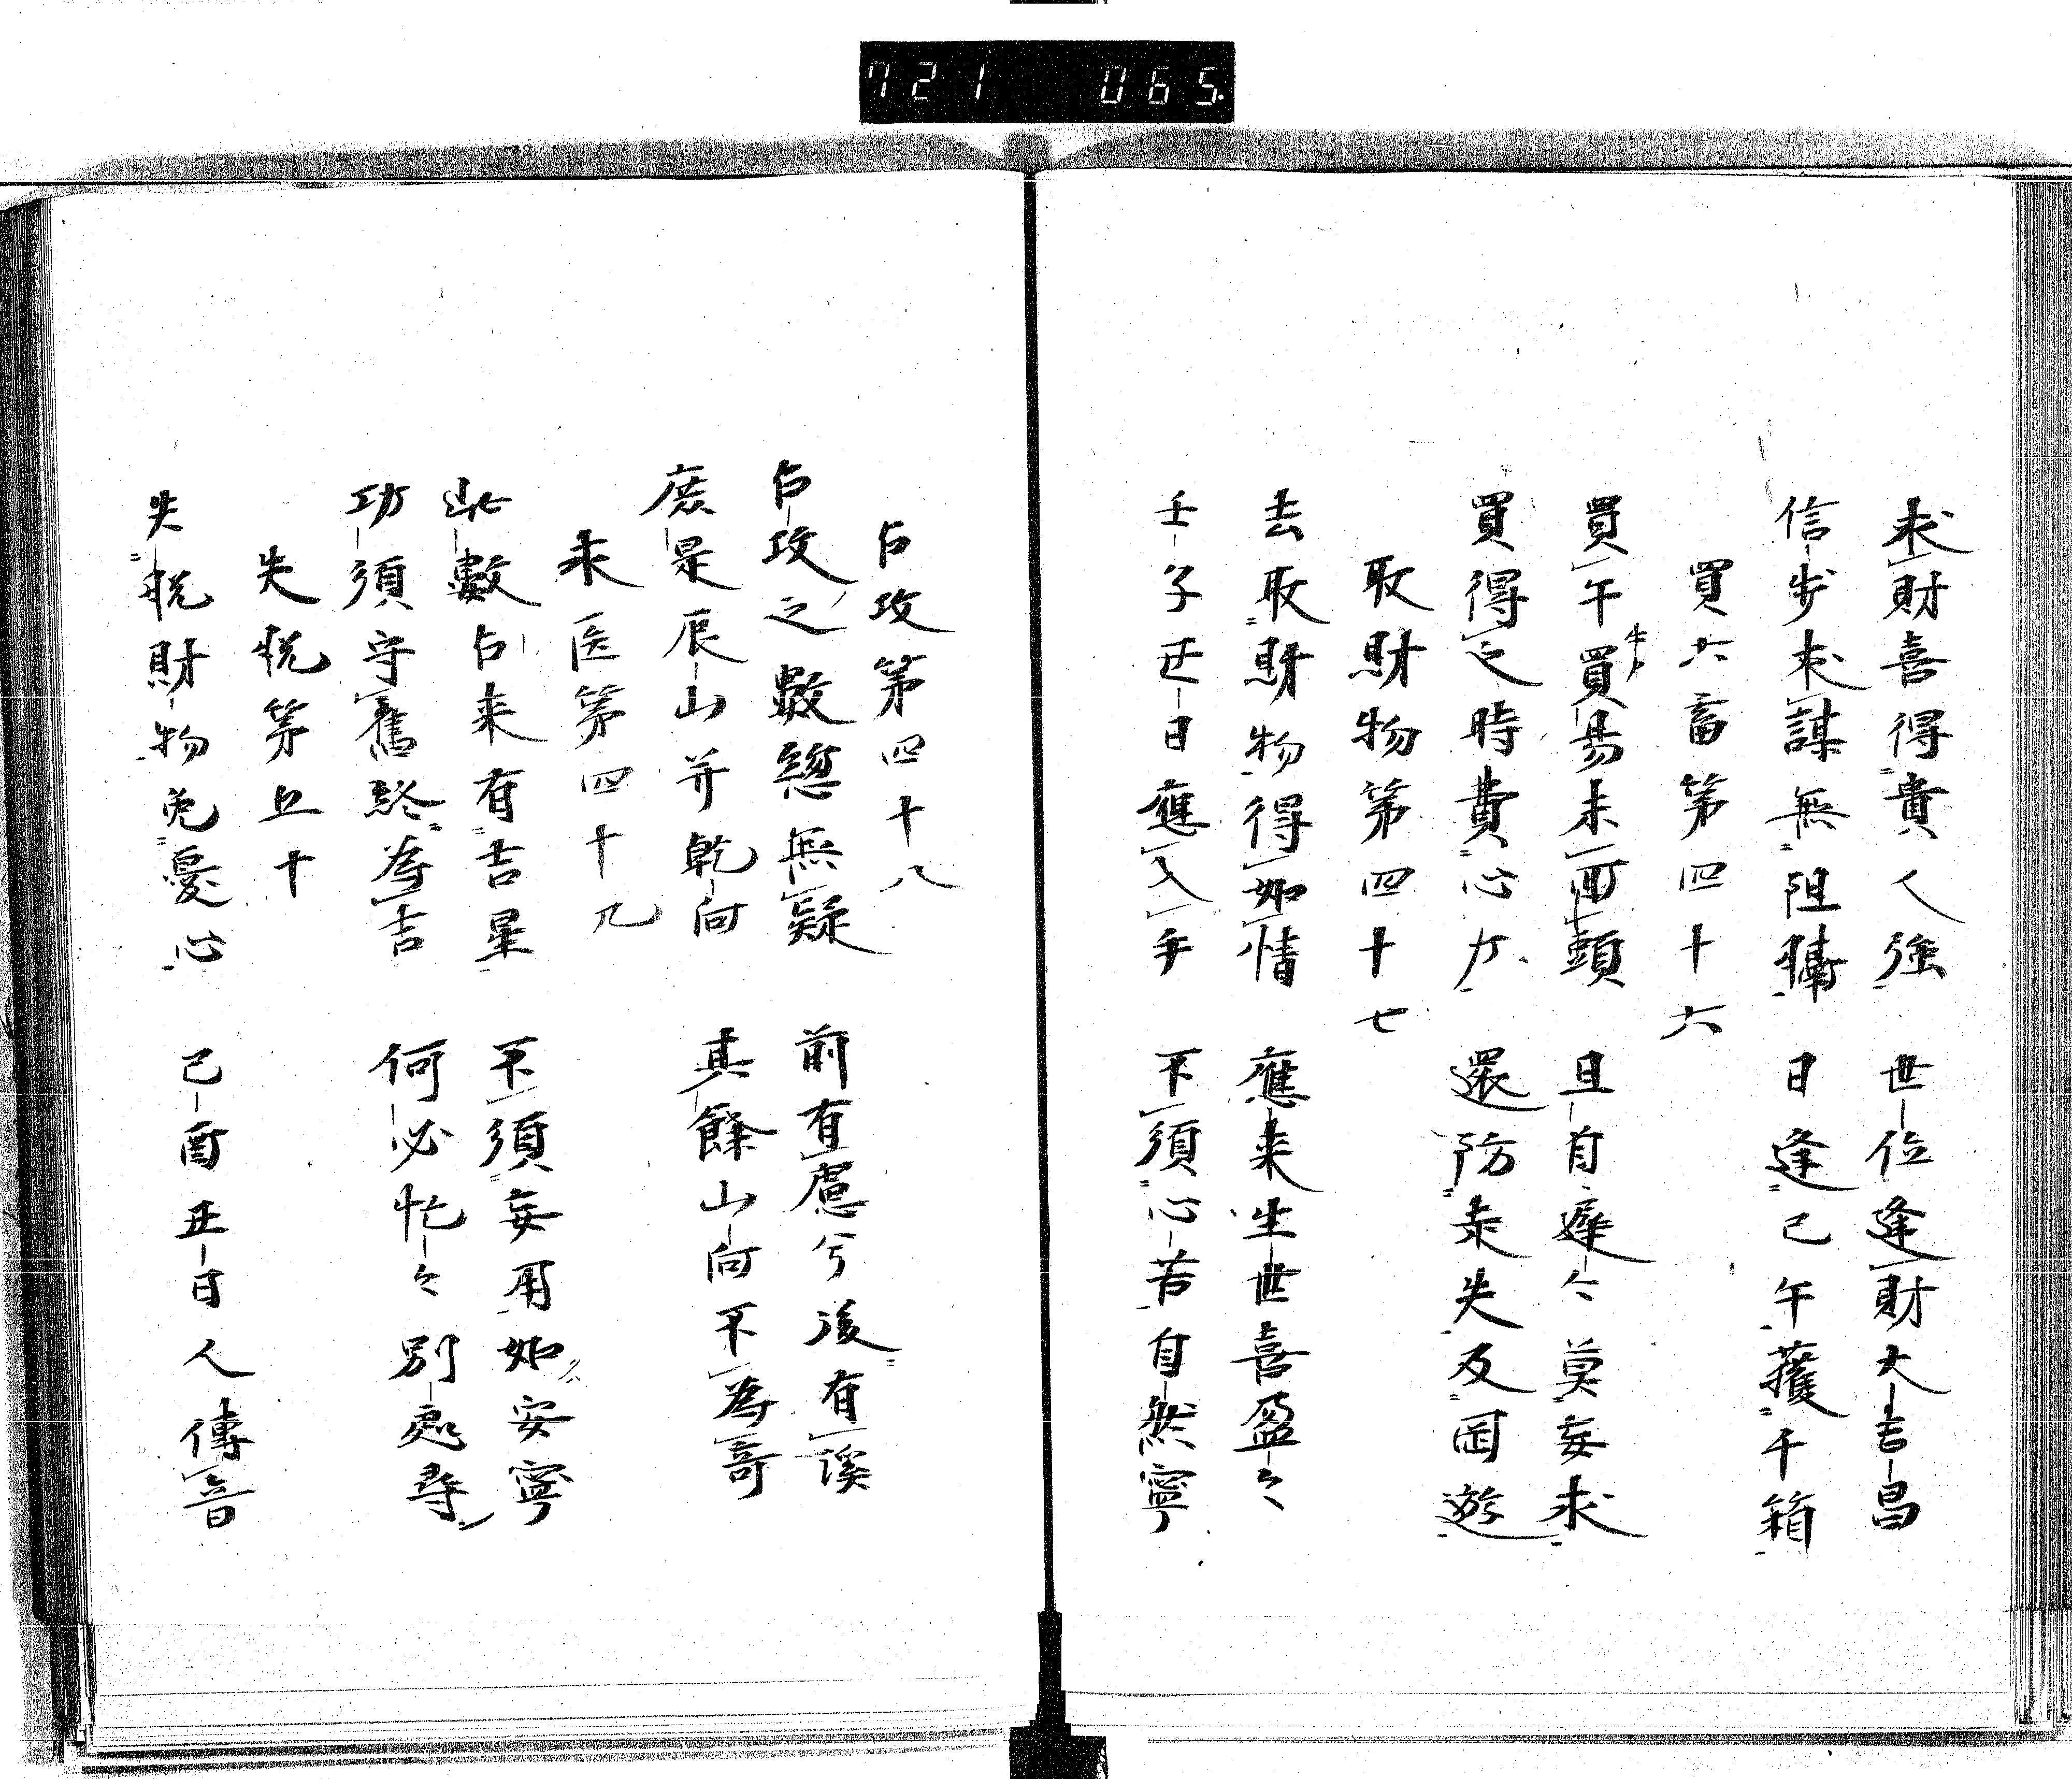 721 065
求財喜得貴人強 世位逢財大吉昌
信步求謀無阻 日逢己午獲千箱
買六畜第四十六
買午買易未可頭 且自遲々莫妄求
牛
買得之時費心力 還防走失及囯遊
取財物第四十七
去取財物得如情 應来生世喜盈々
壬子正日應入手 不須心苦自然寧
占攻第四十八
占攻之數緫無疑 前有慮兮後有溪
庶是辰山并乾向 其餘山向不為奇
未医第四十九
此數占来有吉星 不須妄用如安寧
功須守舊終為吉 何必忙々別處尋
失税第五十
失税財物免憂心 己酉正日人傳音